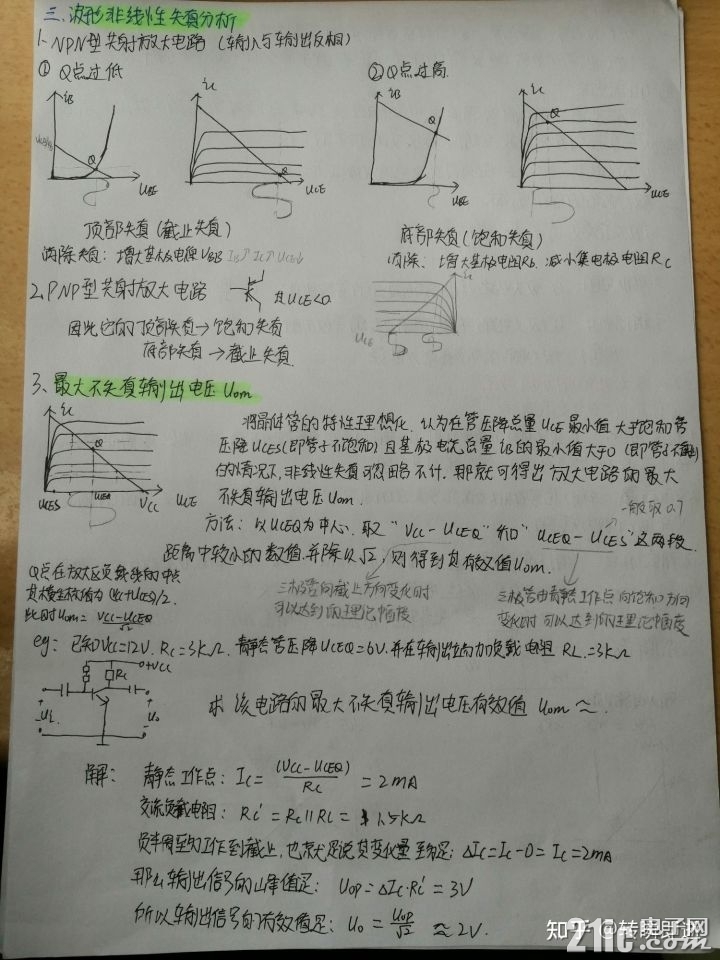 三、波形非线性失真分析
1、NPN型共射放大电路（输入与输出反相）
① Q点过低
② Q点过高
iB
iC
iB
iC
Q
Q
Q
Q
UBE
UCE
UBE
UCE
顶部失真(截止失真)
底部失真(饱和失真)
消除失真：增大基极电源VBB IB↑ IC↑ UCE↓
消除：增大基极电阻Rb. 减小集电极电阻Rc
2、PNP型共射放大电路 其UCE<0.
因此它的顶部失真→饱和失真
底部失真→截止失真.
UCE
3、最大不失真输出电压Uom
iC
Q
UCES UCEQ VCC UCE
将晶体管的特性理想化. 认为在管压降总量UCE最小值大于饱和管
压降UCES(即管子不饱和)且基极电流总量iB的最小值大于0(即管子不截止)
的情况下,非线性失真可忽略不计. 那就可得出放大电路的最大
不失真输出电压Uom.
一般取0.7
方法：以UCEQ为中心. 取"VCC-UCEQ"和"UCEQ-UCES"这两段
距离中较小的数值.并除以√2，则得到其有效值Uom.
Q点在放大区负载线的中点
此时Uom = VCC-UCEQ/√2
三极管向截止方向变化时
可以达到的理论幅度
三极管由静态工作点向饱和方向
变化时可以达到的理论幅度
eg：已知VCC=12V. Rc=3kΩ. 静态管压降UCEQ=6V.并在输出端加负载电阻RL=3kΩ
+VCC
Rc
Ui
Uo
求该电路的最大不失真输出电压有效值 Uom ≈.
解：静态工作点：Ic = (VCC-UCEQ)/Rc = 2mA
交流负载电阻：RL' = Rc||RL = 1.5kΩ
负半周至多工作到截止，也就是说其变化量至多是：ΔIc=Ic-0=Ic=2mA
那么输出信号的峰值是：Uop=ΔIc·RL'=3V
所以输出信号的有效值是：Uo = Uop/√2 ≈ 2V.
知乎 @转眼即逝
21ic.com
电子网